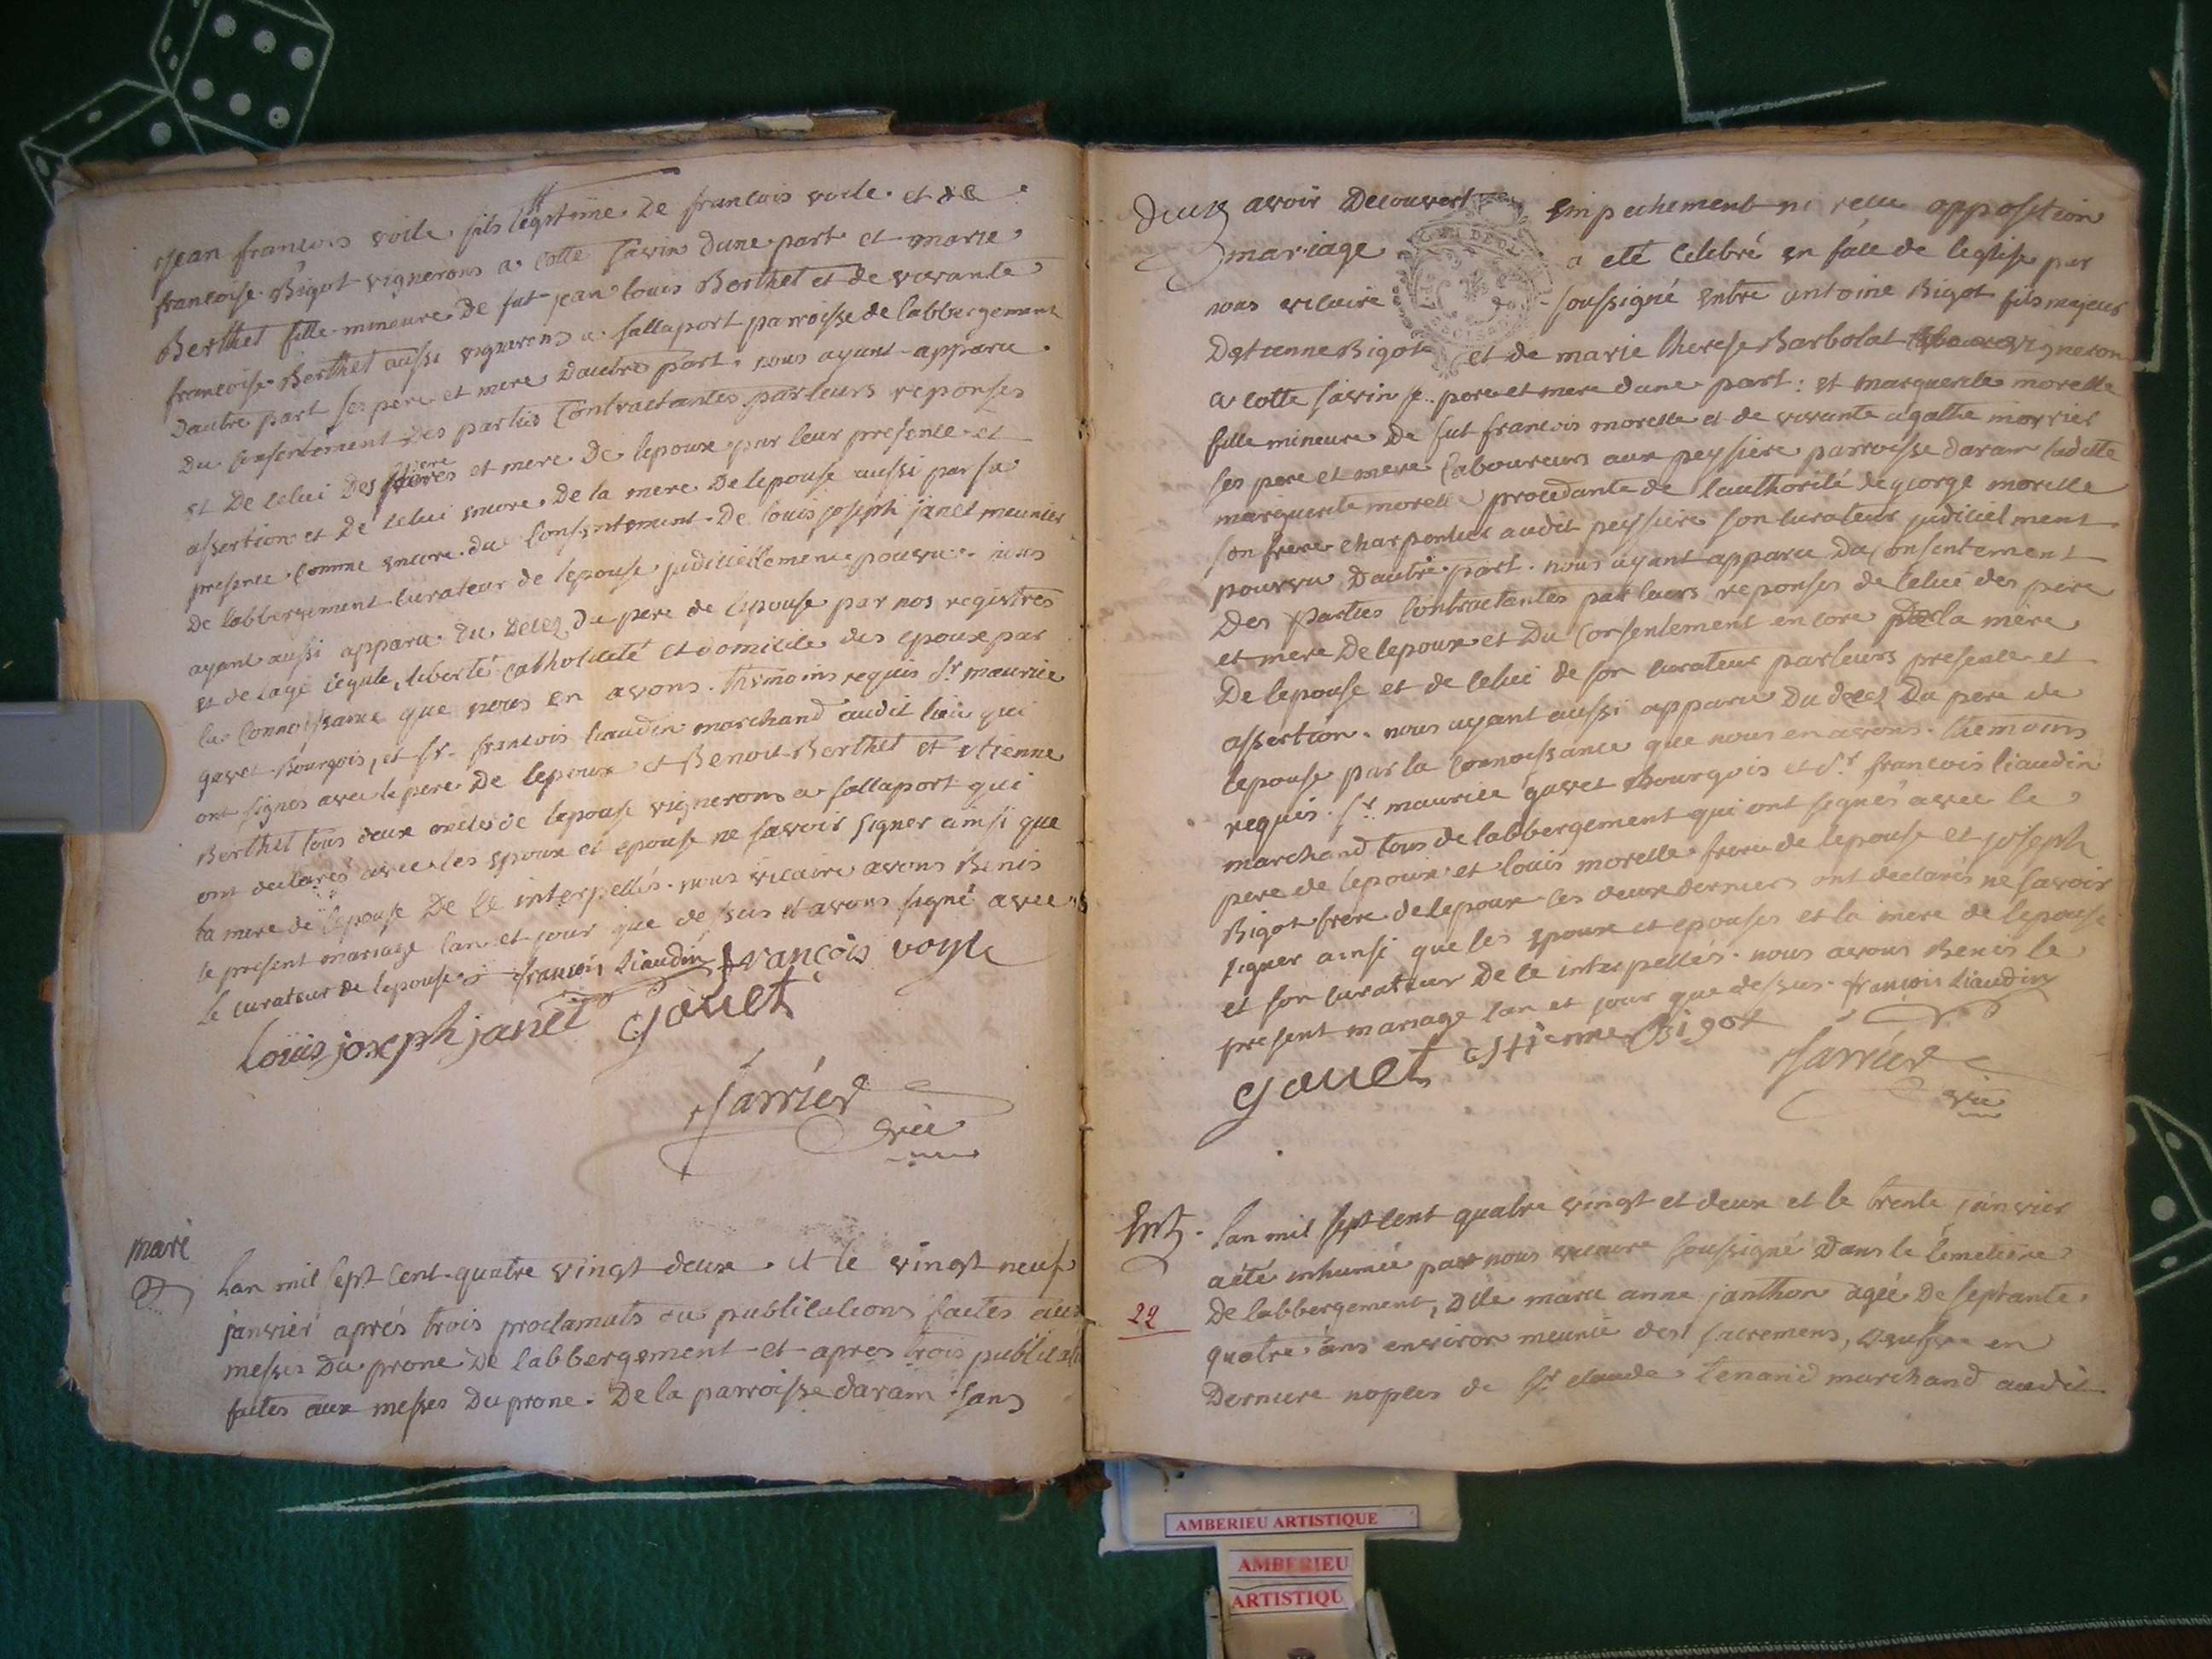 jean francois voile fils legitime de francois voile et de
francoise Bigot vignerons a cotte savin dune part et marie
Berthet fille mineure de fut jean louis Berthet et de vivante
francoise Berthet aussi vignerons a sallaport parroisse de labbergement
dautre part ses pere et mere dautre part. nous ayant apparu
du consentement des parties contractantes par leurs reponses
et de celui des pere et mere de lepoux par leur presence et
assertion et de celui encore de la mere de lepouse aussi par sa
presence comme encore du consentement de louis joseph janet meunier
de labbergement curateur de lepouse judiciellement pourvu. nous
ayant aussi apparu du decez du pere de lepouse par nos registres
et de lage legale, liberté catholicité et domicile des epoux par
la connoissance que nous en avons. themoins requis sr maurice
gavet Bourgois, et sr. francois liaudin marchand audit lieu qui
ont signés avec le pere de lepoux et Benoit Berthet et etienne
Berthet tous deux oncles de lepouse vignerons a sallaport qui
ont declarés avec les epoux et epouse ne savoir signer ainsi que
la mere de lepouse de ce interpellés. nous vicaire avons Benis
le present mariage lan et jour que dessus et avons signé avec
le curateur de lepouse. françois Liaudin françois voyle
Loüis joseph janet gauet
Jarrier
vic
mari
Lan mil sept cent quatre vingt deux et le vingt neuf
janvier aprés trois proclamats ou publications faites aux
messes du prone de labbergement et apres trois publicat
faites aux messes du prone de la parroisse daram sans
avoir decouvert empechement ni recu opposition
mariage a eté celebré en face de leglise par
nous vicaire soussigné entre antoine Bigot fils majeur
detienne Bigot et de marie therese Barbolat vigneron
a cotte savin pere et mere dune part: et marguerite morelle
fille mineure de fut francois morelle et de vivante agathe morrier
ses pere et mere laboureurs aux peysiere parroisse daram ladite
marguerite morelle procedante de lauthorité de george morelle
son frere charpentier audit peysiere son curateur judiciel ment
pourvu dautre part. nous ayant apparu du consentement
des parties contractantes par leurs reponses de celui des pere
et mere de lepoux et du consentement encore de la mere
de lepouse et de celui de son curateur par leurs presence et
assertion. nous ayant aussi apparu du decez du pere de
lepouse par la connoissance que nous en avons. themoins
requis. sr. maurice gavet Bourgois et sr francois liaudin
marchand tous de labbergement qui ont signés avec le
pere de lepoux et louis morelle frere de lepouse et joseph
Bigot frere de lepoux les deux derniers ont declarés ne savoir
signer ainsi que les epoux et epouses et la mere de lepouse
et son curateur de ce interpellés. nous avons Benis le
present mariage lan et jour que dessus. françois Liaudin
gauet estienne Bigot Jarrier
vic
Ent.
Lan mil sept cent quatre vingt et deux et le trente janvier
a été inhumée par nous vicaire soussigné dans le cemetiere
22
de labbergement, dlle marie anne janthon agée de septante
quatre ans environ meunie des sacremens, veufve en
derniere nopces de sr claude tenand marchand audit
AMBERIEU ARTISTIQUE
AMBERIEU
ARTISTIQU